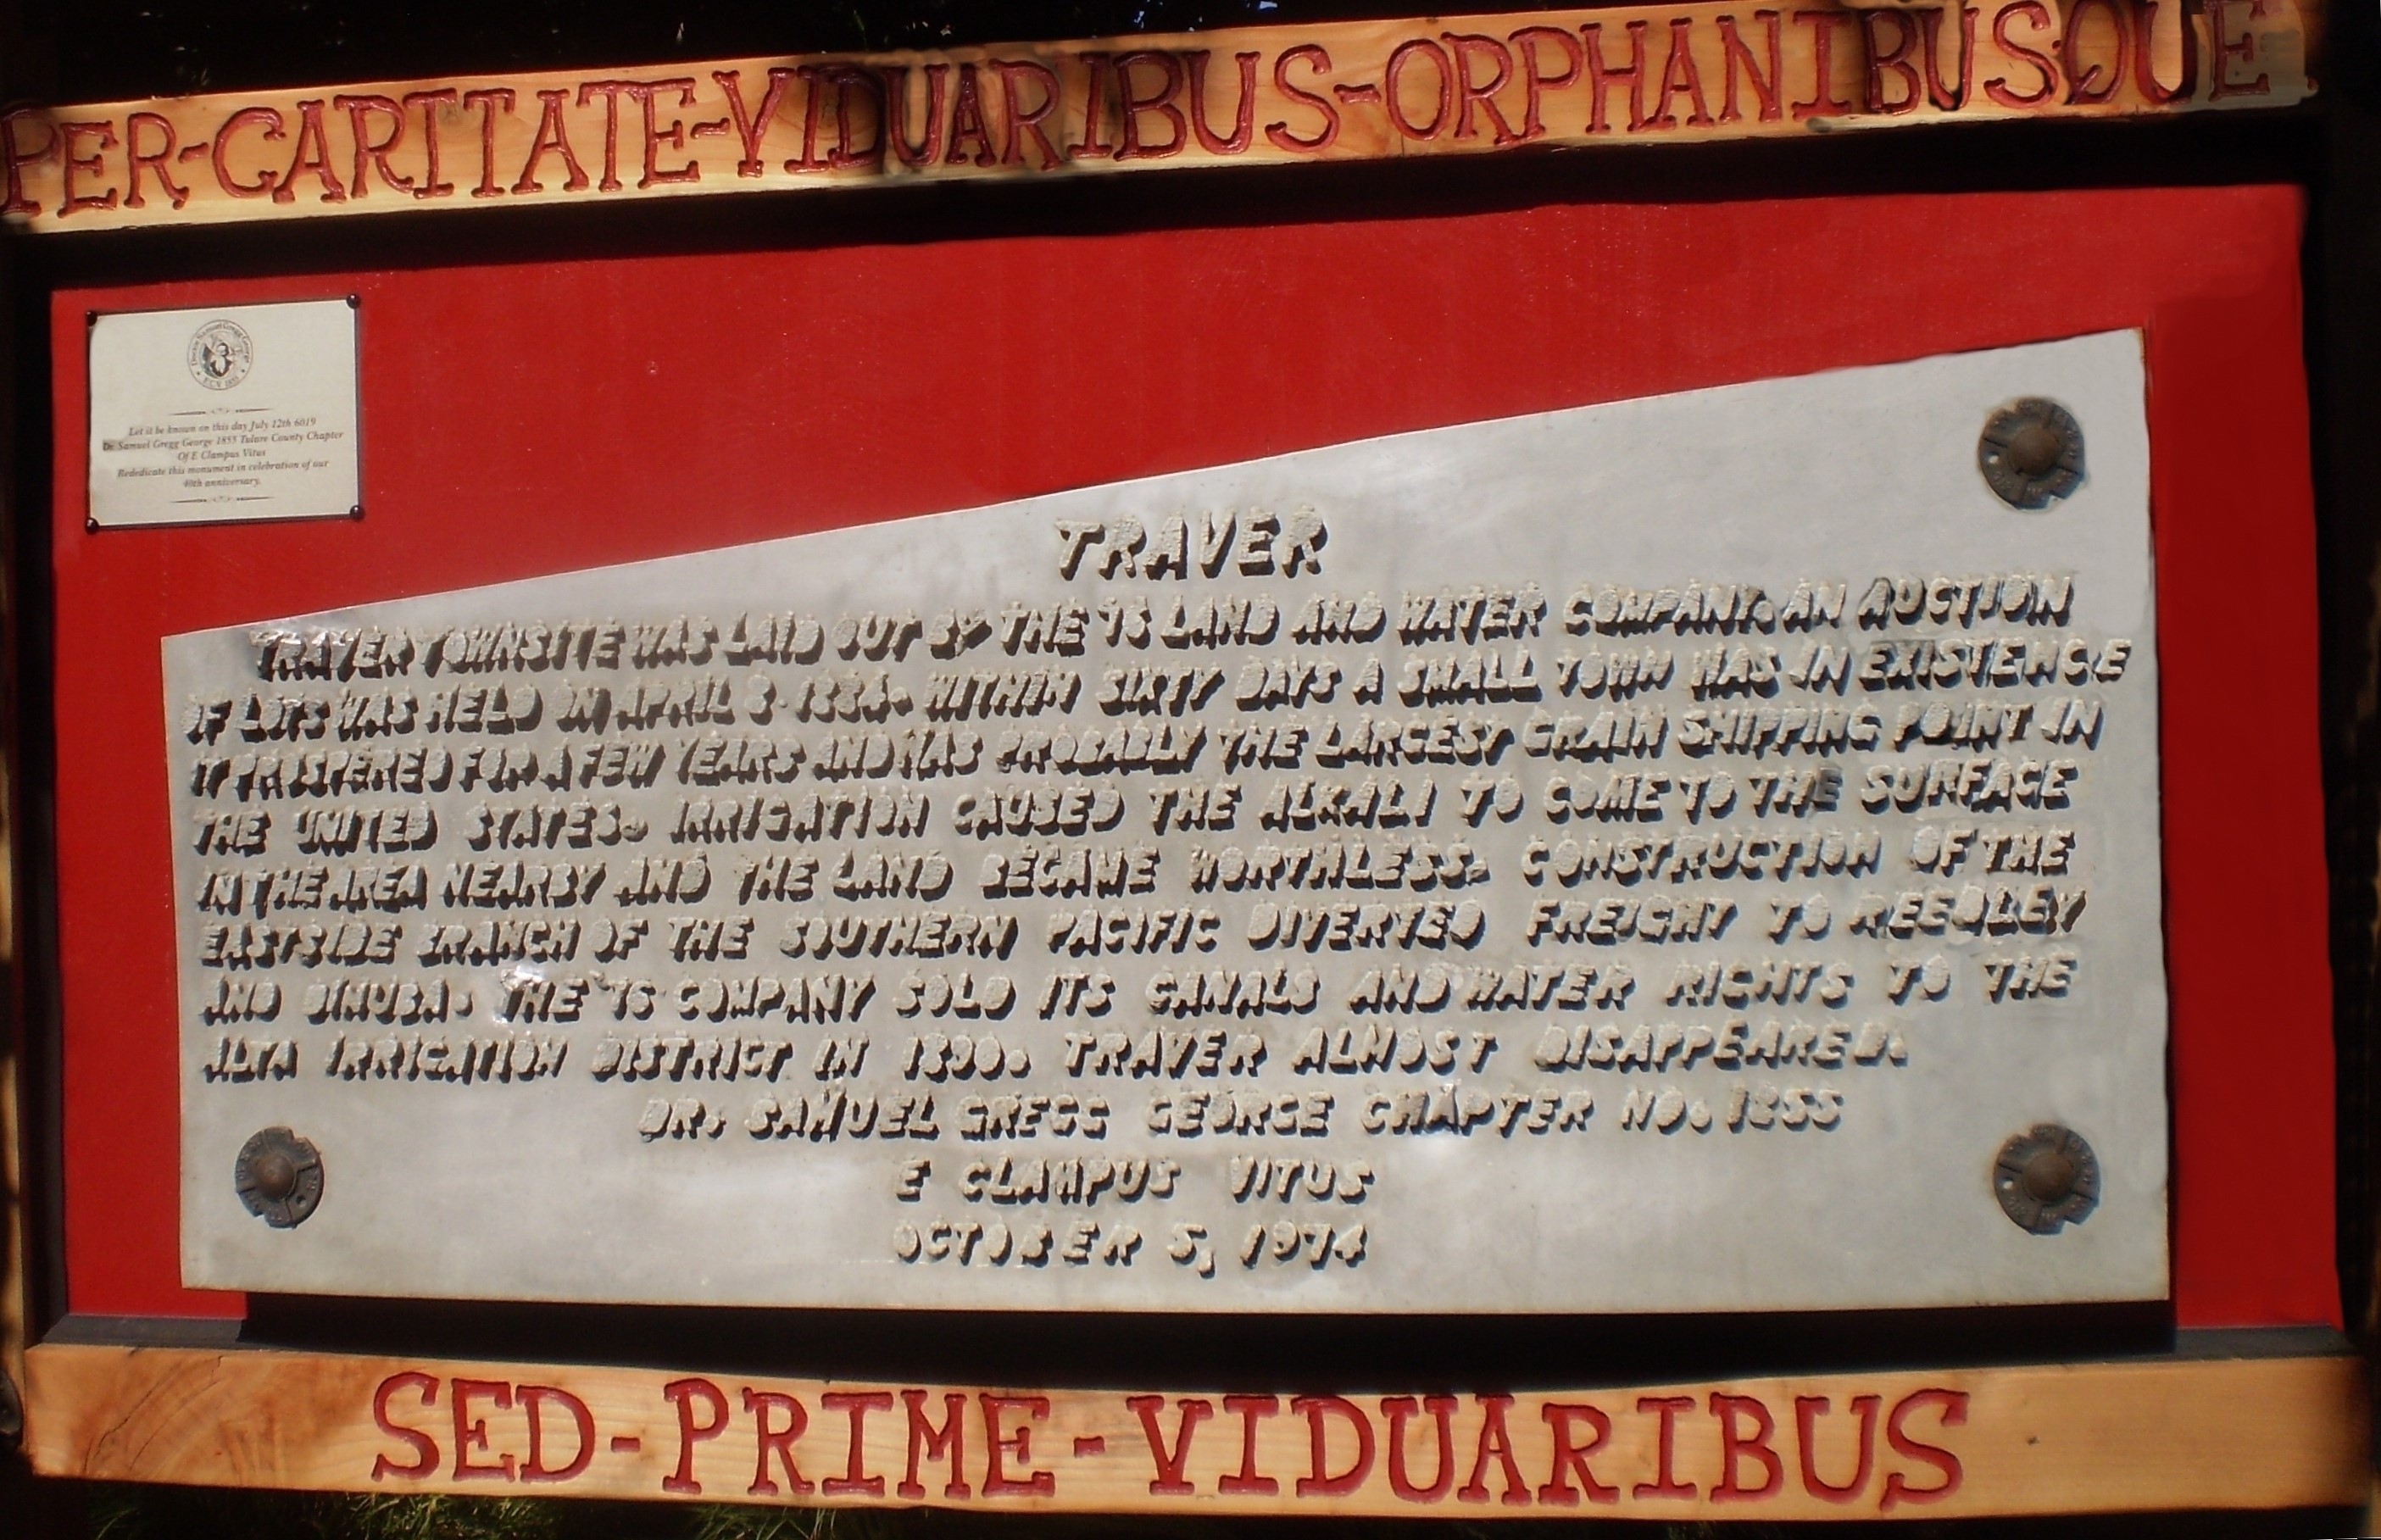 PER-CARITATE-VIDUARIBUS-ORPHANIBUSQUE
Doctor Samuel Gregg George
E.C.V. 1855
Let it be known on this day July 12th 6019
Dr. Samuel Gregg George 1855 Tulare County Chapter
Of E Clampus Vitus
Rededicate this monument in celebration of our
40th anniversary.
TRAVER
TRAVER TOWNSITE WAS LAID OUT BY THE '76 LAND AND WATER COMPANY. AN AUCTION
OF LOTS WAS HELD ON APRIL 8-1884. WITHIN SIXTY DAYS A SMALL TOWN WAS IN EXISTENCE
IT PROSPERED FOR A FEW YEARS AND WAS PROBABLY THE LARGEST GRAIN SHIPPING POINT IN
THE UNITED STATES. IRRIGATION CAUSED THE ALKALI TO COME TO THE SURFACE
IN THE AREA NEARBY AND THE LAND BECAME WORTHLESS. CONSTRUCTION OF THE
EASTSIDE BRANCH OF THE SOUTHERN PACIFIC DIVERTED FREIGHT TO REEDLEY
AND DINUBA. THE '76 COMPANY SOLD ITS CANALS AND WATER RIGHTS TO THE
ALTA IRRIGATION DISTRICT IN 1890. TRAVER ALMOST DISAPPEARED.
DR. SAMUEL GREGG GEORGE CHAPTER NO. 1855
E CLAMPUS VITUS
OCTOBER 5, 1974
SED-PRIME-VIDUARIBUS